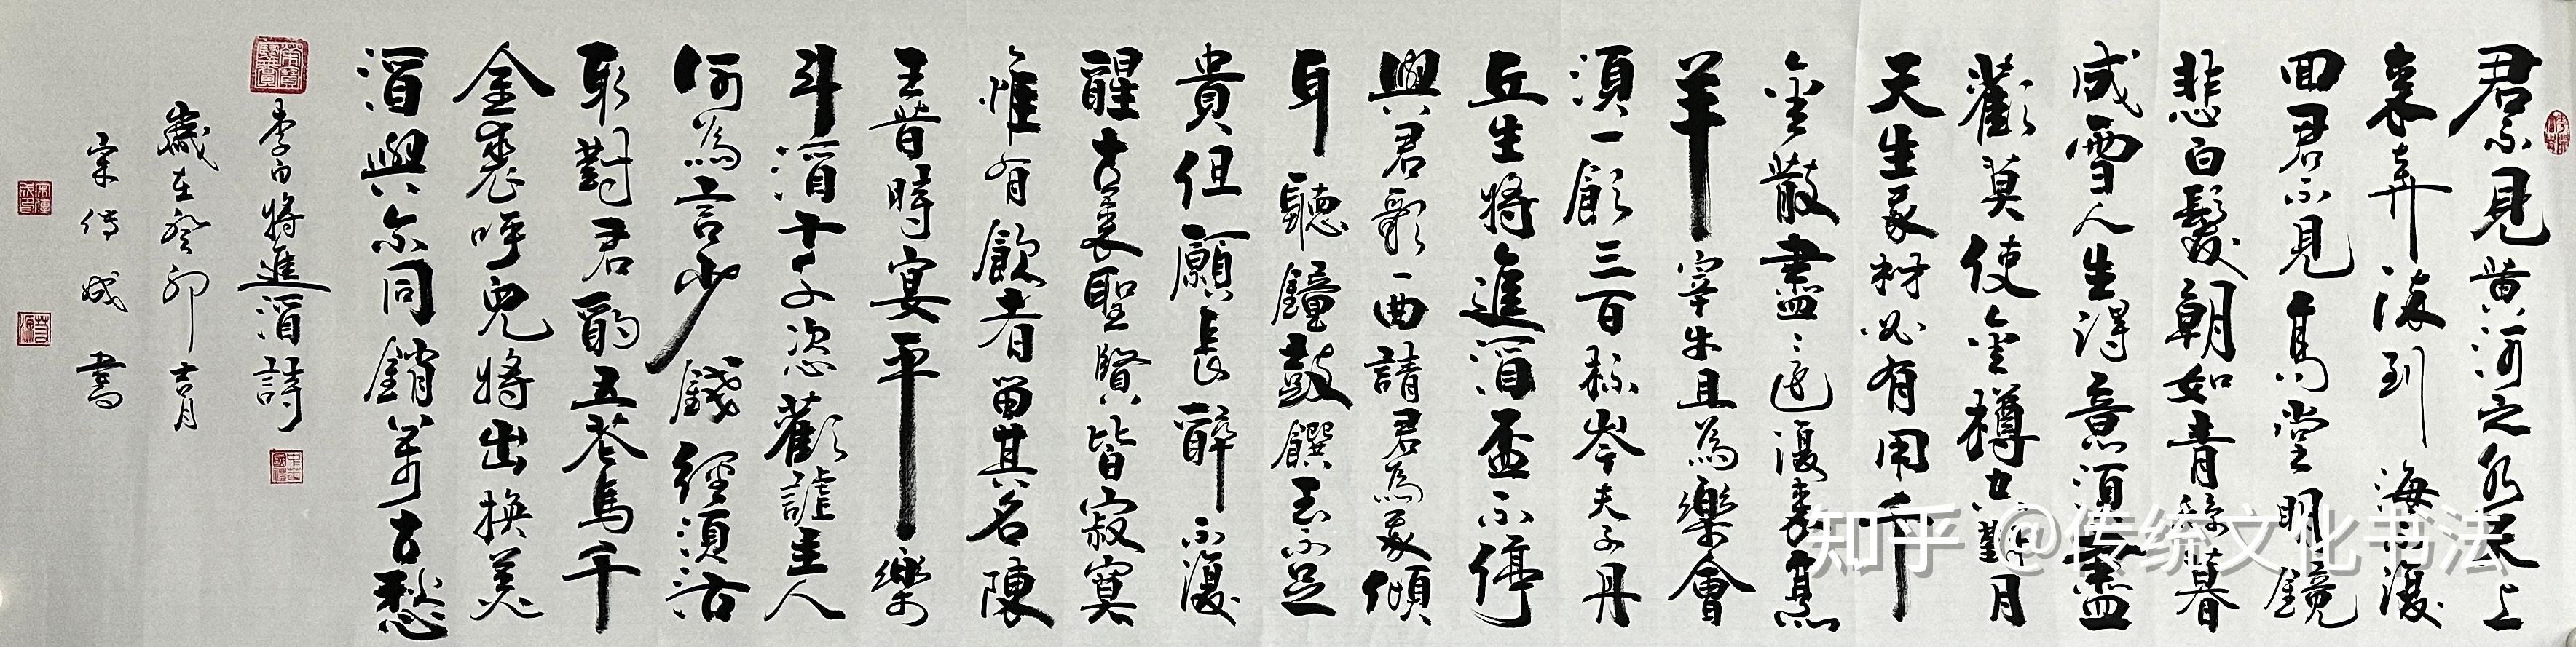 君不見黄河之水天上
來奔流到海不復
回君不見高堂明鏡
悲白髮朝如青絲暮
成雪人生得意須盡
歡莫使金樽空對月
天生我材必有用千
金散盡還復來烹
羊宰牛且為樂會
須一飲三百杯岑夫子丹
丘生將進酒盃不停
與君歌一曲請君為我傾
耳聽鐘鼓饌玉不足
貴但願長醉不復
醒古來聖賢皆寂寞
惟有飲者留其名陳
王昔時宴平樂
斗酒十千恣歡謔主人
何為言少錢徑須沽
取對君酌五花馬千
金裘呼兒將出換美
酒與尔同銷萬古愁
李白將進酒詩
歲在癸卯吉月
宋傳成書
知乎 @传统文化书法